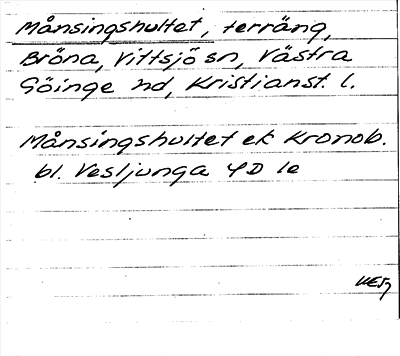 Månsingshultet, terräng,
Bröna, Vittsjö sn, Västra
Göinge hd, Kristianst. l.
Månsingshultet ek Kronob.
bl. Vesljunga 4D 1e